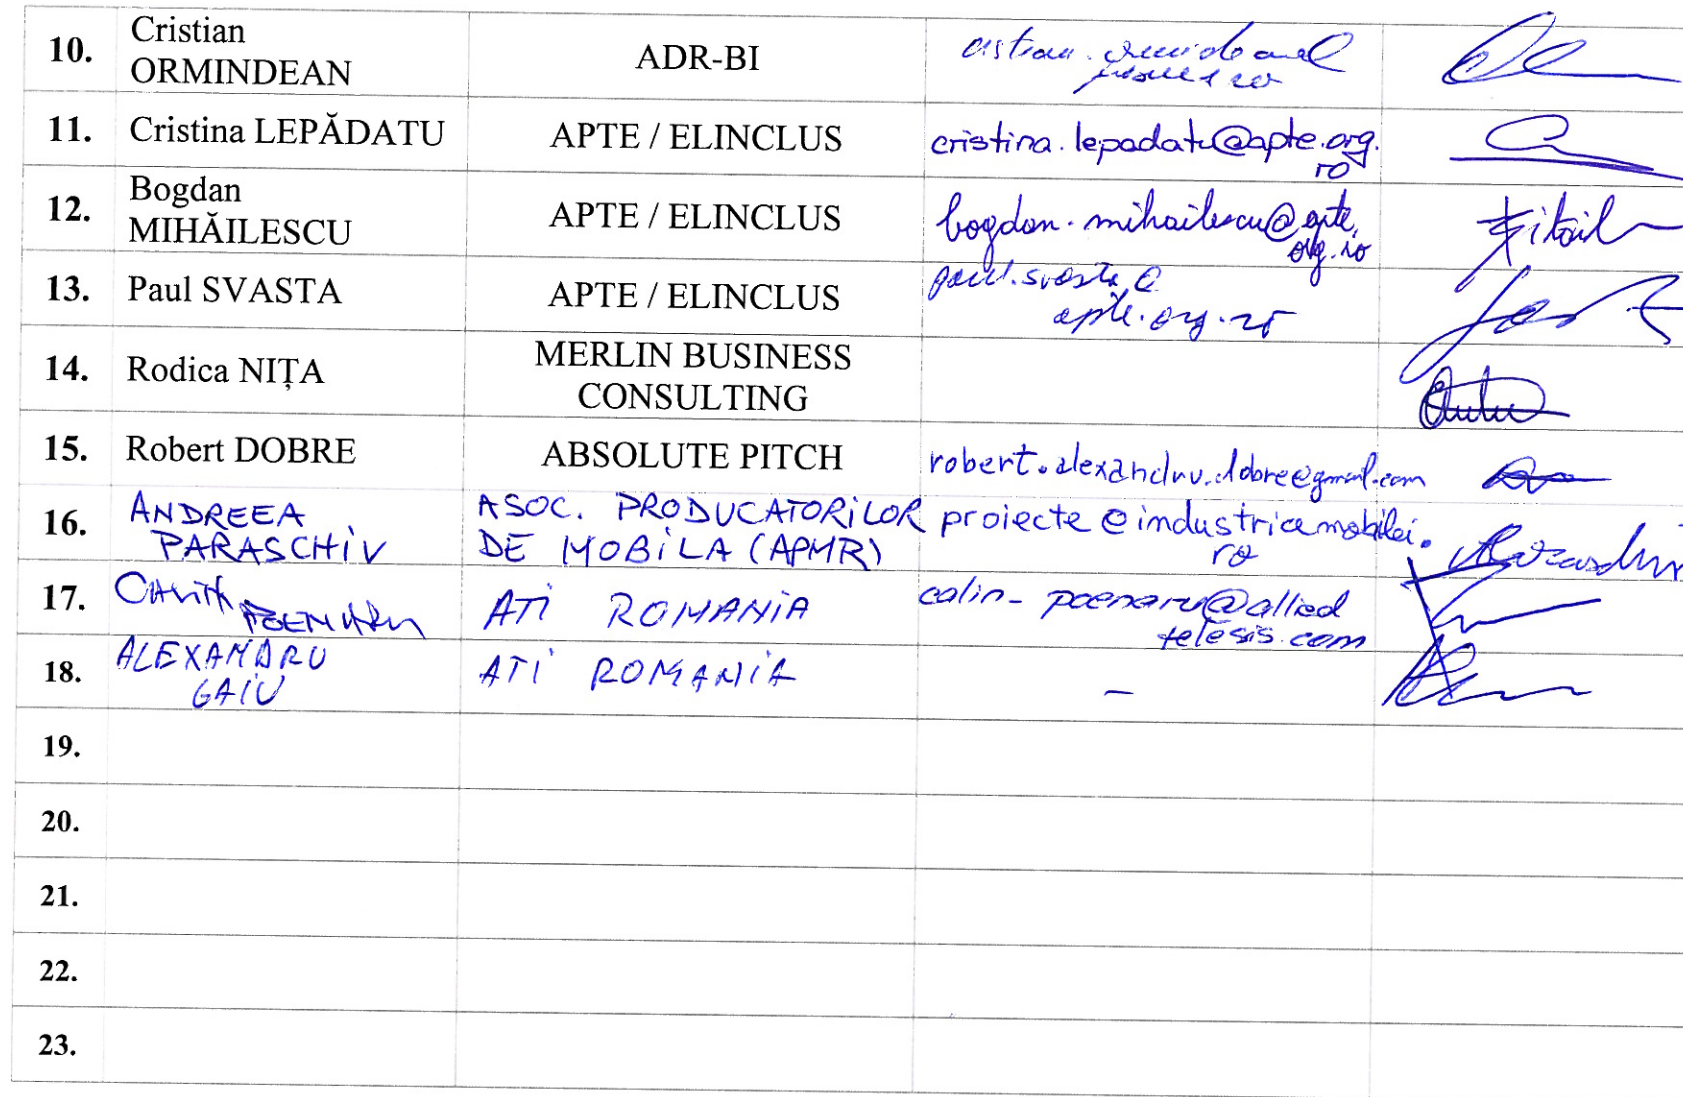 10. Cristian ORMINDEAN ADR-BI
11. Cristina LEPĂDATU APTE / ELINCLUS cristina.lepadatu@apte.org.ro
12. Bogdan MIHĂILESCU APTE / ELINCLUS bogdan.mihailescu@apte.org.ro
13. Paul SVASTA APTE / ELINCLUS paul.svasta@apte.org.ro
14. Rodica NIȚA MERLIN BUSINESS CONSULTING
15. Robert DOBRE ABSOLUTE PITCH robert.alexandru.dobre@gmail.com
16. ANDREEA PARASCHIV ASOC. PRODUCATORILOR DE MOBILA (APMR) proiecte@industriamobilei.ro
17. ATI ROMANIA calin_poenaru@alliedtelesis.com
18. ALEXANDRU GAIU ATI ROMANIA –
19.
20.
21.
22.
23.